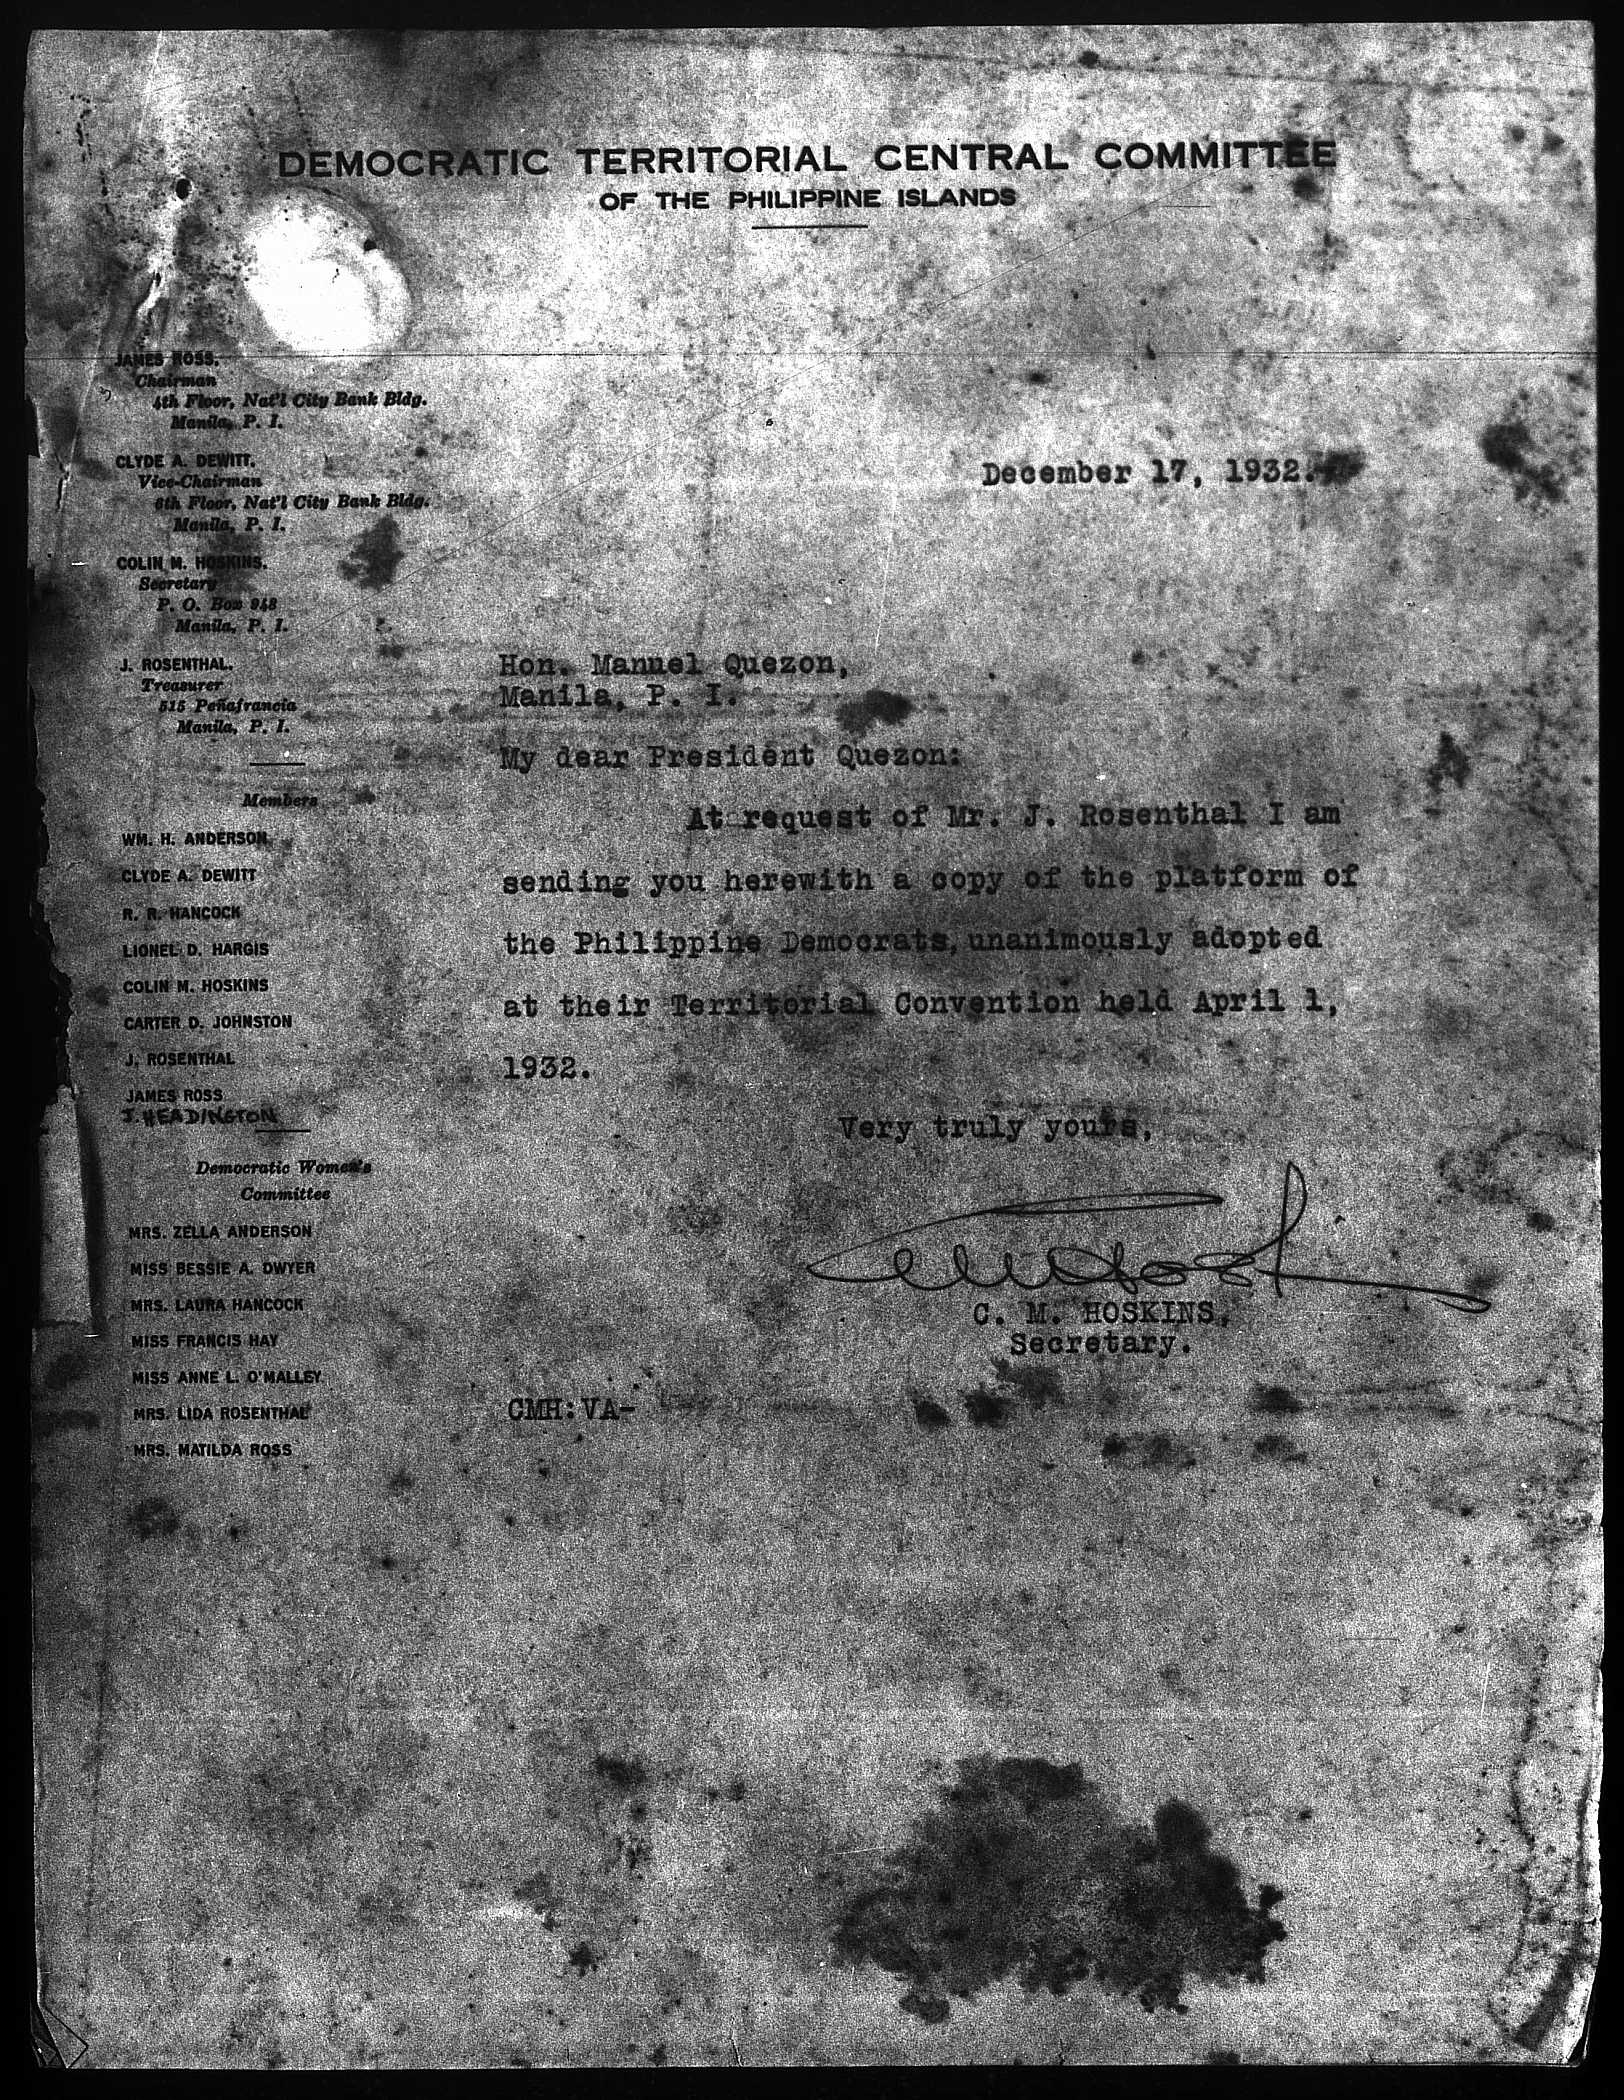 DEMOCRATIC TERRITORIAL CENTRAL COMMITTEE
OF THE PHILIPPINE ISLANDS
JAMES ROSS,
Chairman
4th Floor, Nat'l City Bank Bldg.
Manila, P. I.
CLYDE A. DEWITT,
Vice-Chairman
6th Floor, Nat'l City Bank Bldg.
Manila, P. I.
COLIN M. HOSKINS,
Secretary
P. O. Box 948
Manila, P. I.
J. ROSENTHAL,
Treasurer
515 Peñafrancia
Manila, P. I.
Members
WM. H. ANDERSON
CLYDE A. DEWITT
R. R. HANCOCK
LIONEL D. HARGIS
COLIN M. HOSKINS
CARTER D. JOHNSTON
J. ROSENTHAL
JAMES ROSS
J. HEADINGTON
Democratic Women's
Committee
MRS. ZELLA ANDERSON
MISS BESSIE A. DWYER
MRS. LAURA HANCOCK
MISS FRANCIS HAY
MISS ANNE L. O'MALLEY
MRS. LIDA ROSENTHAL
MRS. MATILDA ROSS
December 17, 1932.
Hon. Manuel Quezon,
Manila, P. I.
My dear President Quezon:
At request of Mr. J. Rosenthal I am
sending you herewith a copy of the platform of
the Philippine Democrats, unanimously adopted
at their Territorial Convention held April 1,
1932.
Very truly yours,
C. M. HOSKINS,
Secretary.
CMH:VA-